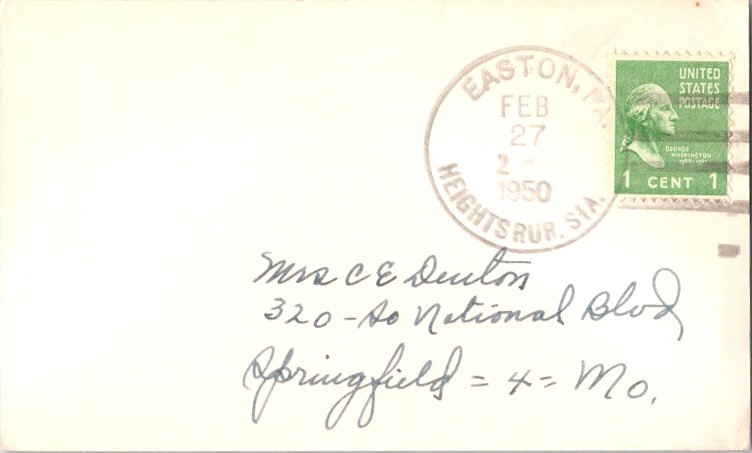 EASTON, PA.
FEB
27
2
1950
HEIGHTS RUR. STA.
UNITED
STATES
POSTAGE
GEORGE
WASHINGTON
1 CENT 1
Mrs C E Denton
320 - So National Blvd
Springfield = 4 = Mo.